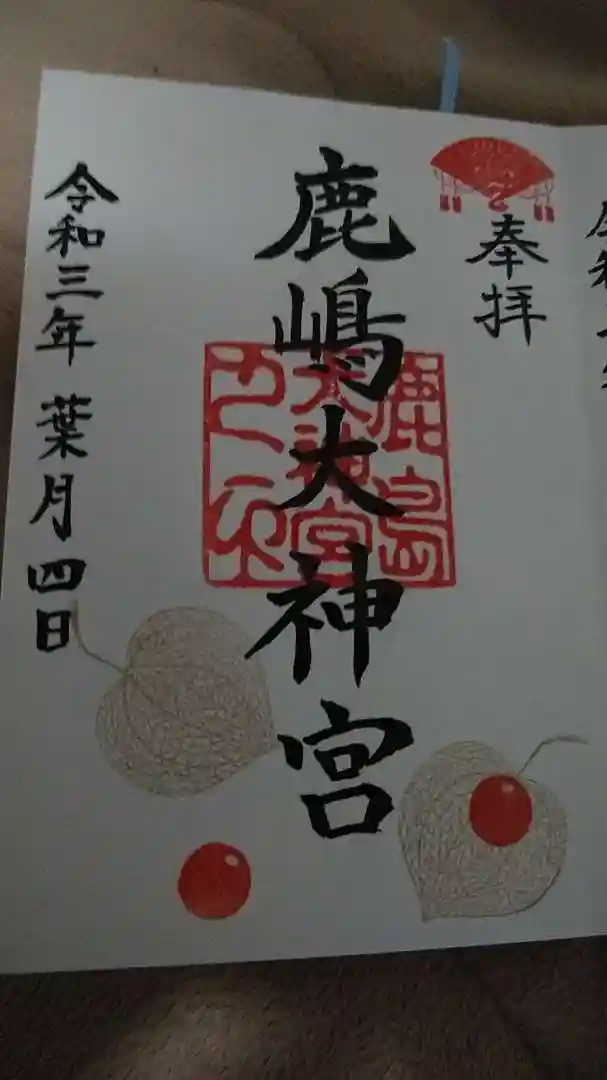 奉拝
鹿嶋大神宮
鹿島
大神宮
令和三年 葉月四日